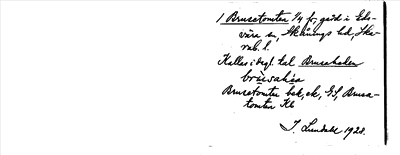 1 Brusetomten 1/4 fr. gård i Eds-
vära sn, Skånings hd, Ska-
rab. l.
Kallas i dagl. tal Brusehalen
brusahia
Brusetomter bek, ek, GS, Brusa-
tomten Kb
I. Lundahl 1928.